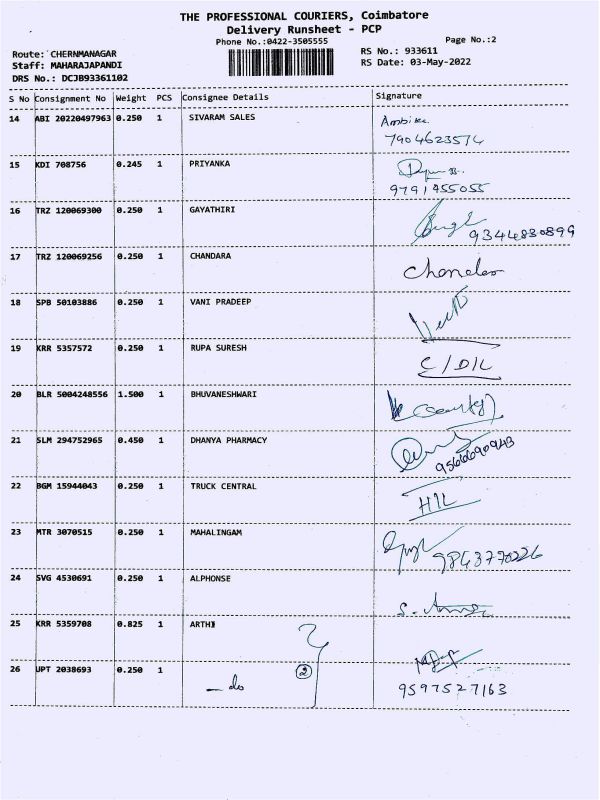 THE PROFESSIONAL COURIERS, Coimbatore
Delivery Runsheet - PCP
Phone No.:0422-3505555
Page No.:2
Route: CHERNMANAGAR
RS No.: 933611
Staff: MAHARAJAPANDI
RS Date: 03-May-2022
DRS No.: DCJB93361102
S No Consignment No Weight PCS Consignee Details Signature
14 ABI 20220497963 0.250 1 SIVARAM SALES Ambika
7904623574
15 KDI 708756 0.245 1 PRIYANKA
9791455055
16 TRZ 120069300 0.250 1 GAYATHIRI
9344830899
17 TRZ 120069256 0.250 1 CHANDARA
18 SPB 50103886 0.250 1 VANI PRADEEP
19 KRR 5357572 0.250 1 RUPA SURESH
20 BLR 5004248556 1.500 1 BHUVANESHWARI
21 SLM 294752965 0.450 1 DHANYA PHARMACY
9566690943
22 BGM 15944043 0.250 1 TRUCK CENTRAL
23 MTR 3070515 0.250 1 MAHALINGAM
9843770226
24 SVG 4530691 0.250 1 ALPHONSE
25 KRR 5359708 0.825 1 ARTHI
26 UPT 2038693 0.250 1 — do 2
9597527163